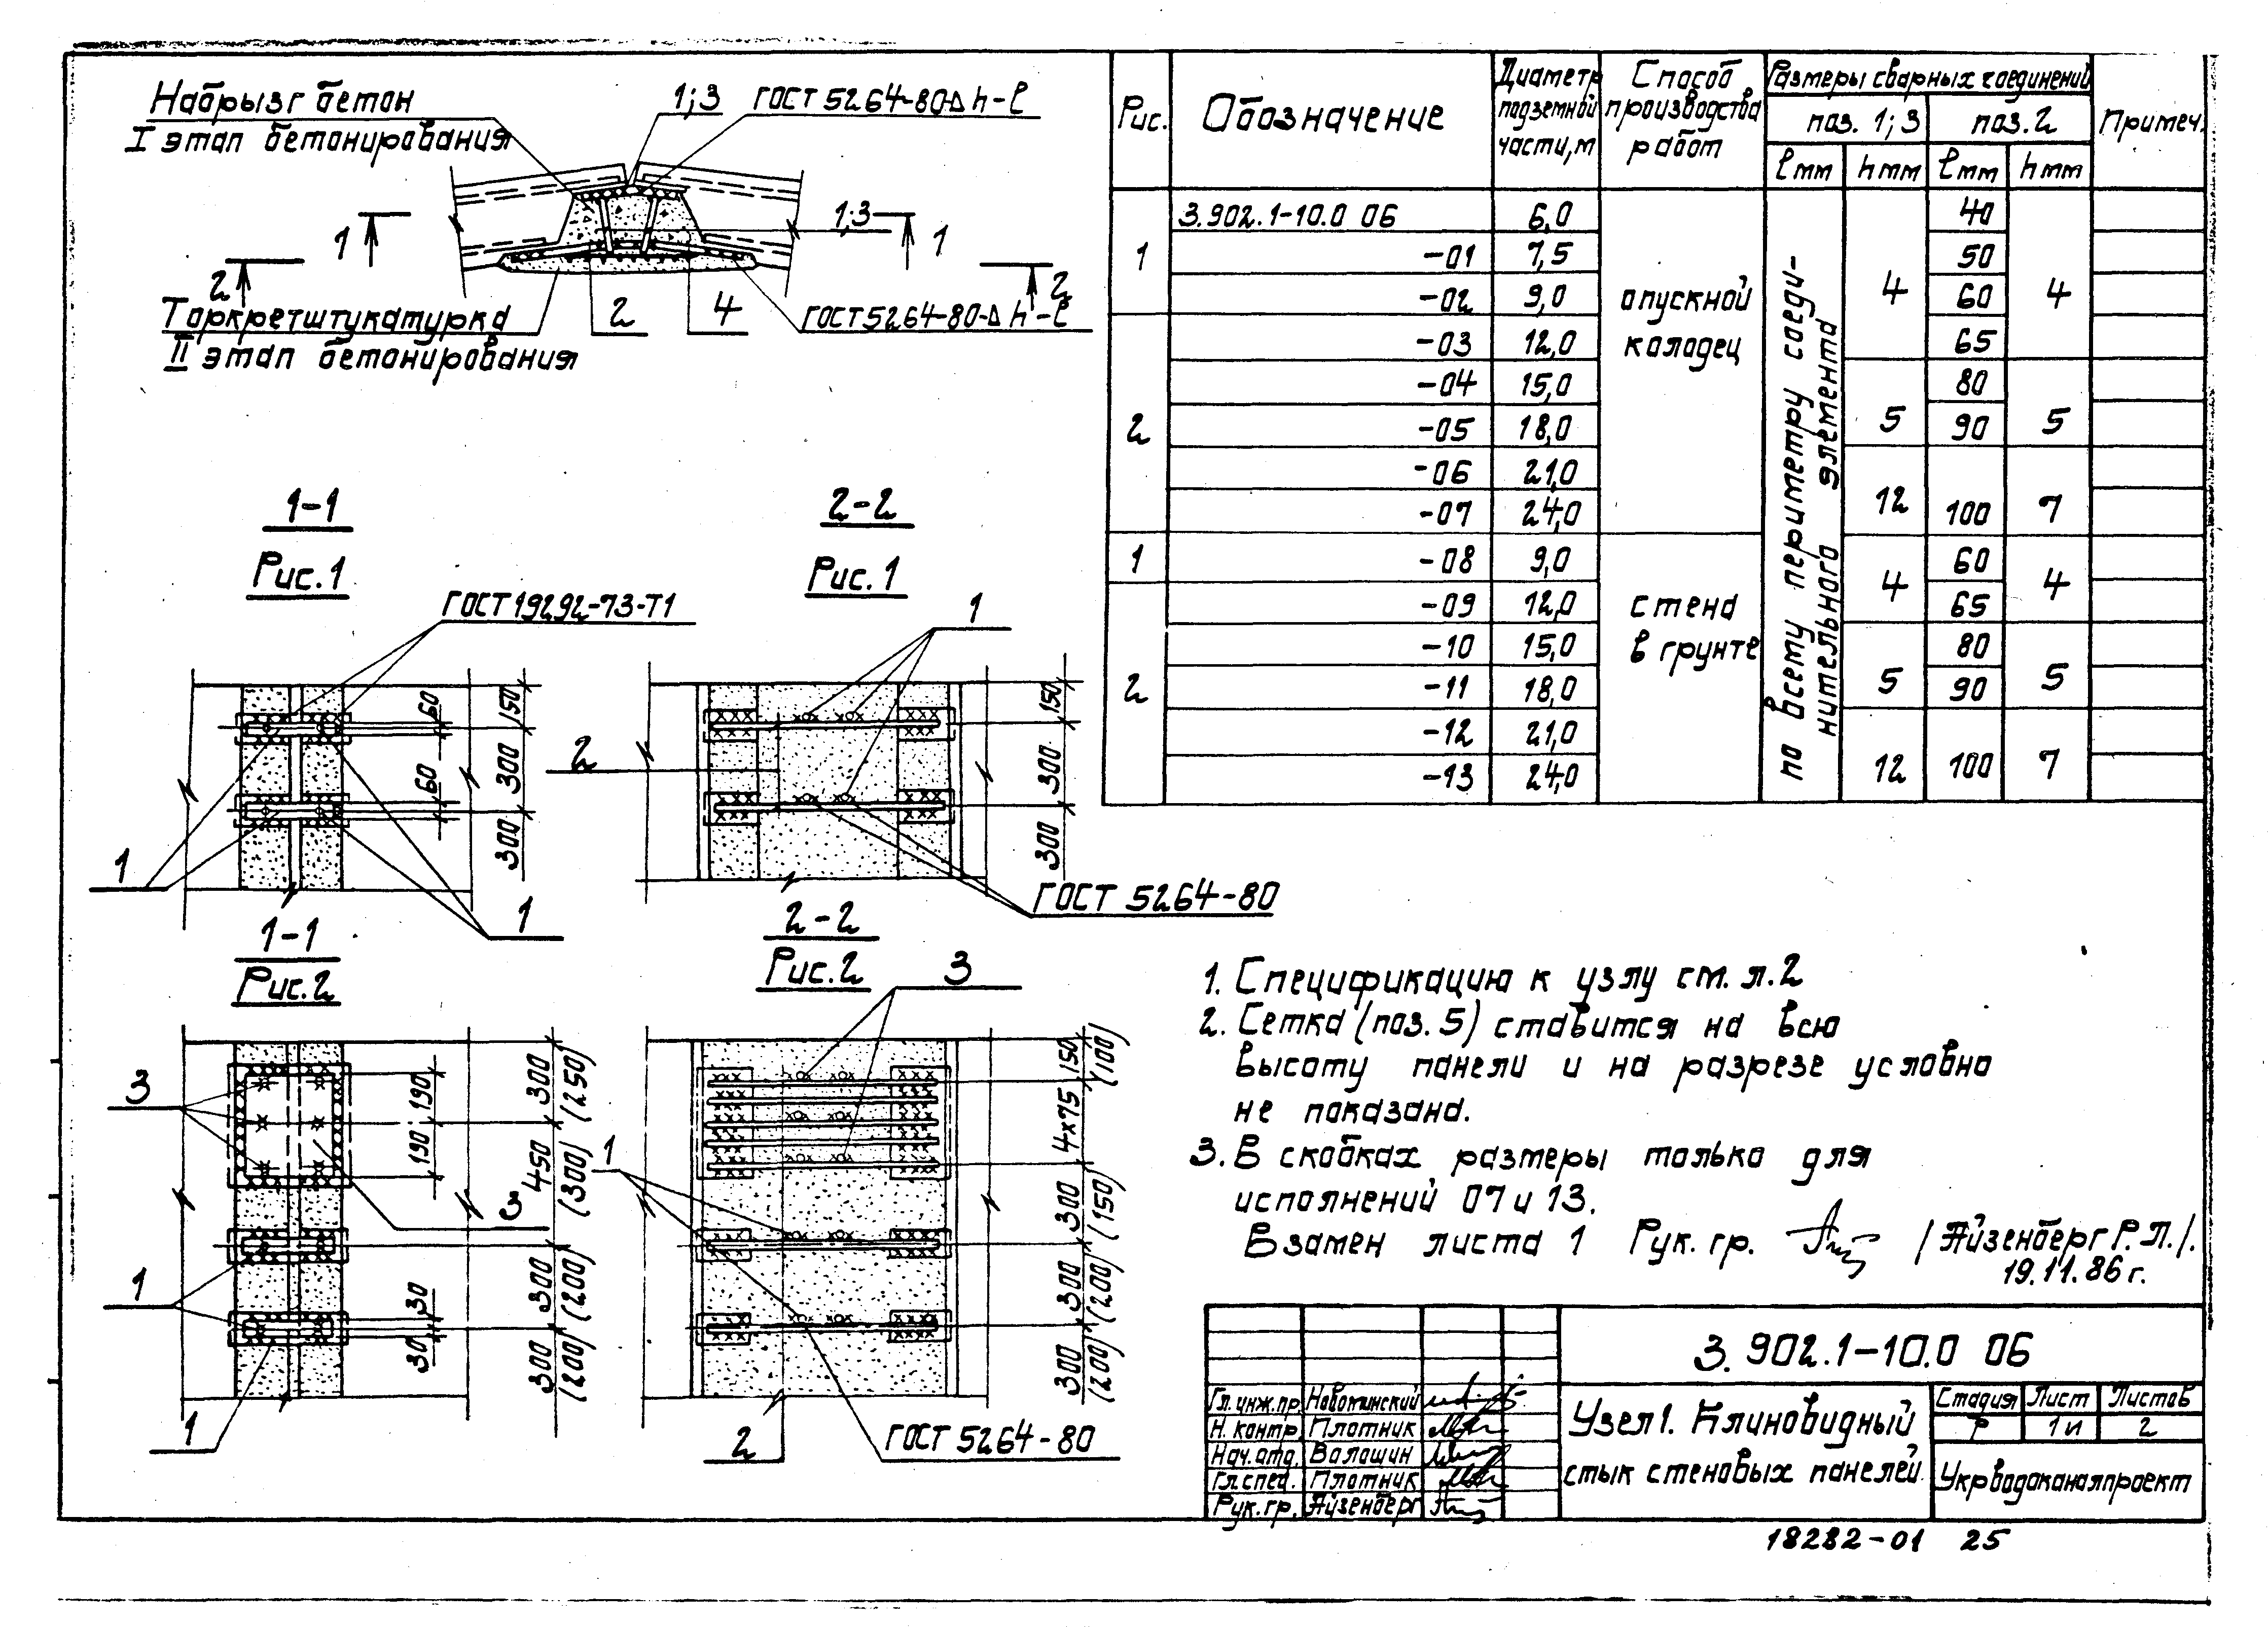 Набрызг бетон
I этап бетонирования
1;3
ГОСТ 5264-80-Δ h-ℓ
1;3
1
1
2
2
Торкретштукатурка
II этап бетонирования
2
4
ГОСТ 5264-80-Δ h-ℓ
1-1
Рис.1
ГОСТ 19292-73-Т1
60
150
60
300
300
1
1
2-2
Рис.1
1
2
150
300
300
ГОСТ 5264-80
1-1
Рис.2
3
190
190
300
(250)
450
(300)
3
1
30
30
300
(200)
300
(200)
1
2-2
Рис.2
3
1
150
(100)
4х75
300
(150)
300
(200)
300
(200)
2
ГОСТ 5264-80
Рис.
Обозначение
Диаметр подземной части, м
Способ производства работ
Размеры сварных соединений
Примеч.
поз. 1; 3
поз. 2
ℓ мм
h мм
ℓ мм
h мм
1
3.902.1-10.0 06
6,0
опускной колодец
по всему периметру соеди-
нительного элемента
4
40
4
-01
7,5
50
-02
9,0
60
2
-03
12,0
65
-04
15,0
5
80
5
-05
18,0
90
-06
21,0
12
100
7
-07
24,0
1
-08
9,0
стена в грунте
4
60
4
2
-09
12,0
65
-10
15,0
5
80
5
-11
18,0
90
-12
21,0
12
100
7
-13
24,0
1. Спецификацию к узлу см. л.2
2. Сетка (поз. 5) ставится на всю
высоту панели и на разрезе условно
не показана.
3. В скобках размеры только для
исполнений 07 и 13.
Взамен листа 1 Рук. гр. /Айзенберг Р.Л./.
19.11.86 г.
3. 902.1-10.0 06
Гл. инж. пр. Новотинский
Н. контр. Плотник
Нач. отд. Волошин
Гл. спец. Плотник
Рук. гр. Айзенберг
Узел 1. Клиновидный
стык стеновых панелей
Стадия Лист Листов
Р 1и 2
Укрводоканалпроект
18282-01 25